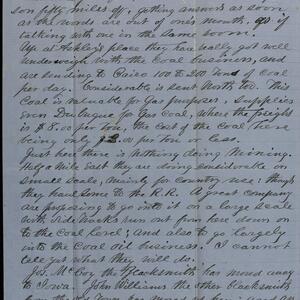 son fifty miles off, getting answers as soon
as the words are out of one's mouth, as if
talking with one in the same room.
Up at Ashley's place they have really got well
underweigh with the Coal business, and
are sending to Cairo 100 to 200 Tons of Coal
per day. Considerable is sent North too. This
Coal is valuable for Gas purposes. Supplies
even Dubuque for Gas Coal, where the freight
is $8.00 per ton, the cost of the Coal here
being only $2.00 per ton or less.
Just here there is nothing doing Mining.
Half a Mile East they are doing considerable on
small scale, mainly for country use, though
they haul some to the R.R. A great company
are proposing to go into it on a large scale
with Side Tracks run out from here down on
to the Coal level; and also to go largely
into the Coal oil business. I cannot
tell yet what they will do.
Jos. McCoy the Blacksmith has moved away
to Iowa. John Williams the other blacksmith